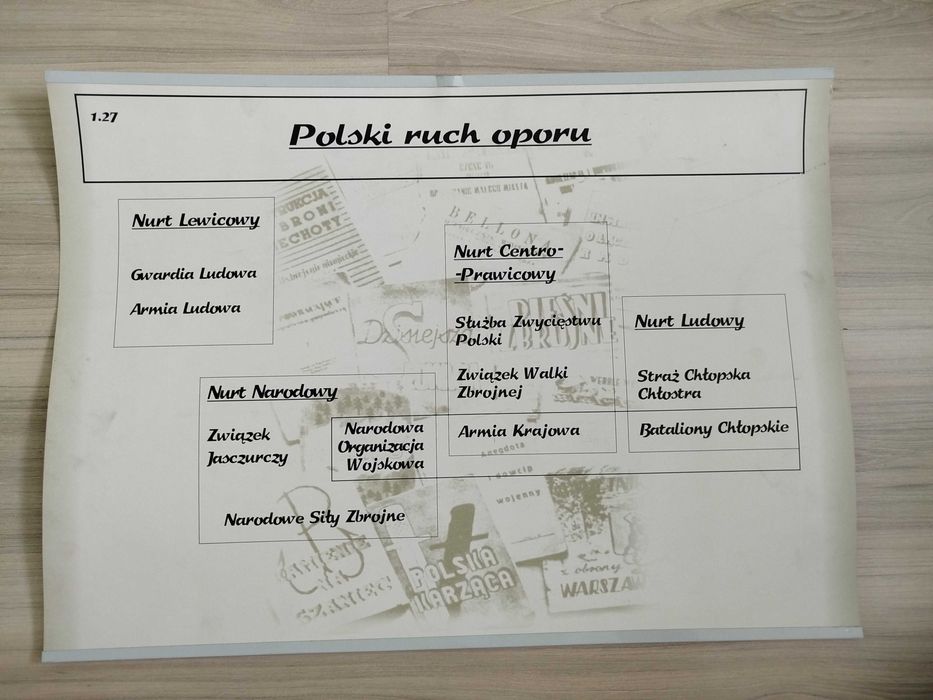 1.27
Polski ruch oporu
Nurt Lewicowy
Gwardia Ludowa
Armia Ludowa
Nurt Centro-
-Prawicowy
Służba Zwycięstwu
Polski
Związek Walki
Zbrojnej
Armia Krajowa
Nurt Ludowy
Straż Chłopska
Chłostra
Bataliony Chłopskie
Nurt Narodowy
Związek
Jasczurczy
Narodowa
Organizacja
Wojskowa
Narodowe Siły Zbrojne
BRONI
BELLONA
Dzisiejsza
PIEŚNI
ZBROJNE
i dowcip
wojenny
POLSKA
KARZĄCA
z obrony